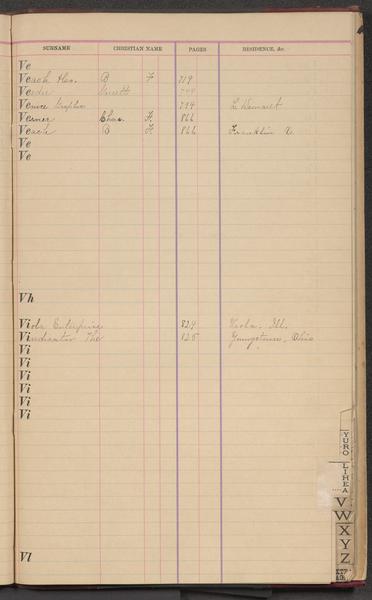 SURNAME CHRISTIAN NAME PAGES RESIDENCE, &c.
Ve
Veach Geo. B F 719
Veeder
Venice Graphic 714
Verner Chas. F. 866
Veach B F. 866 Franklin
Ve
Ve
Vh
Viola Enterprise 829 Viola. Ill.
Vindicator The 125 Youngstown, Ohio
Vi
Vi
Vi
Vi
Vi
Vi
Vl
V
W
X
Y
Z